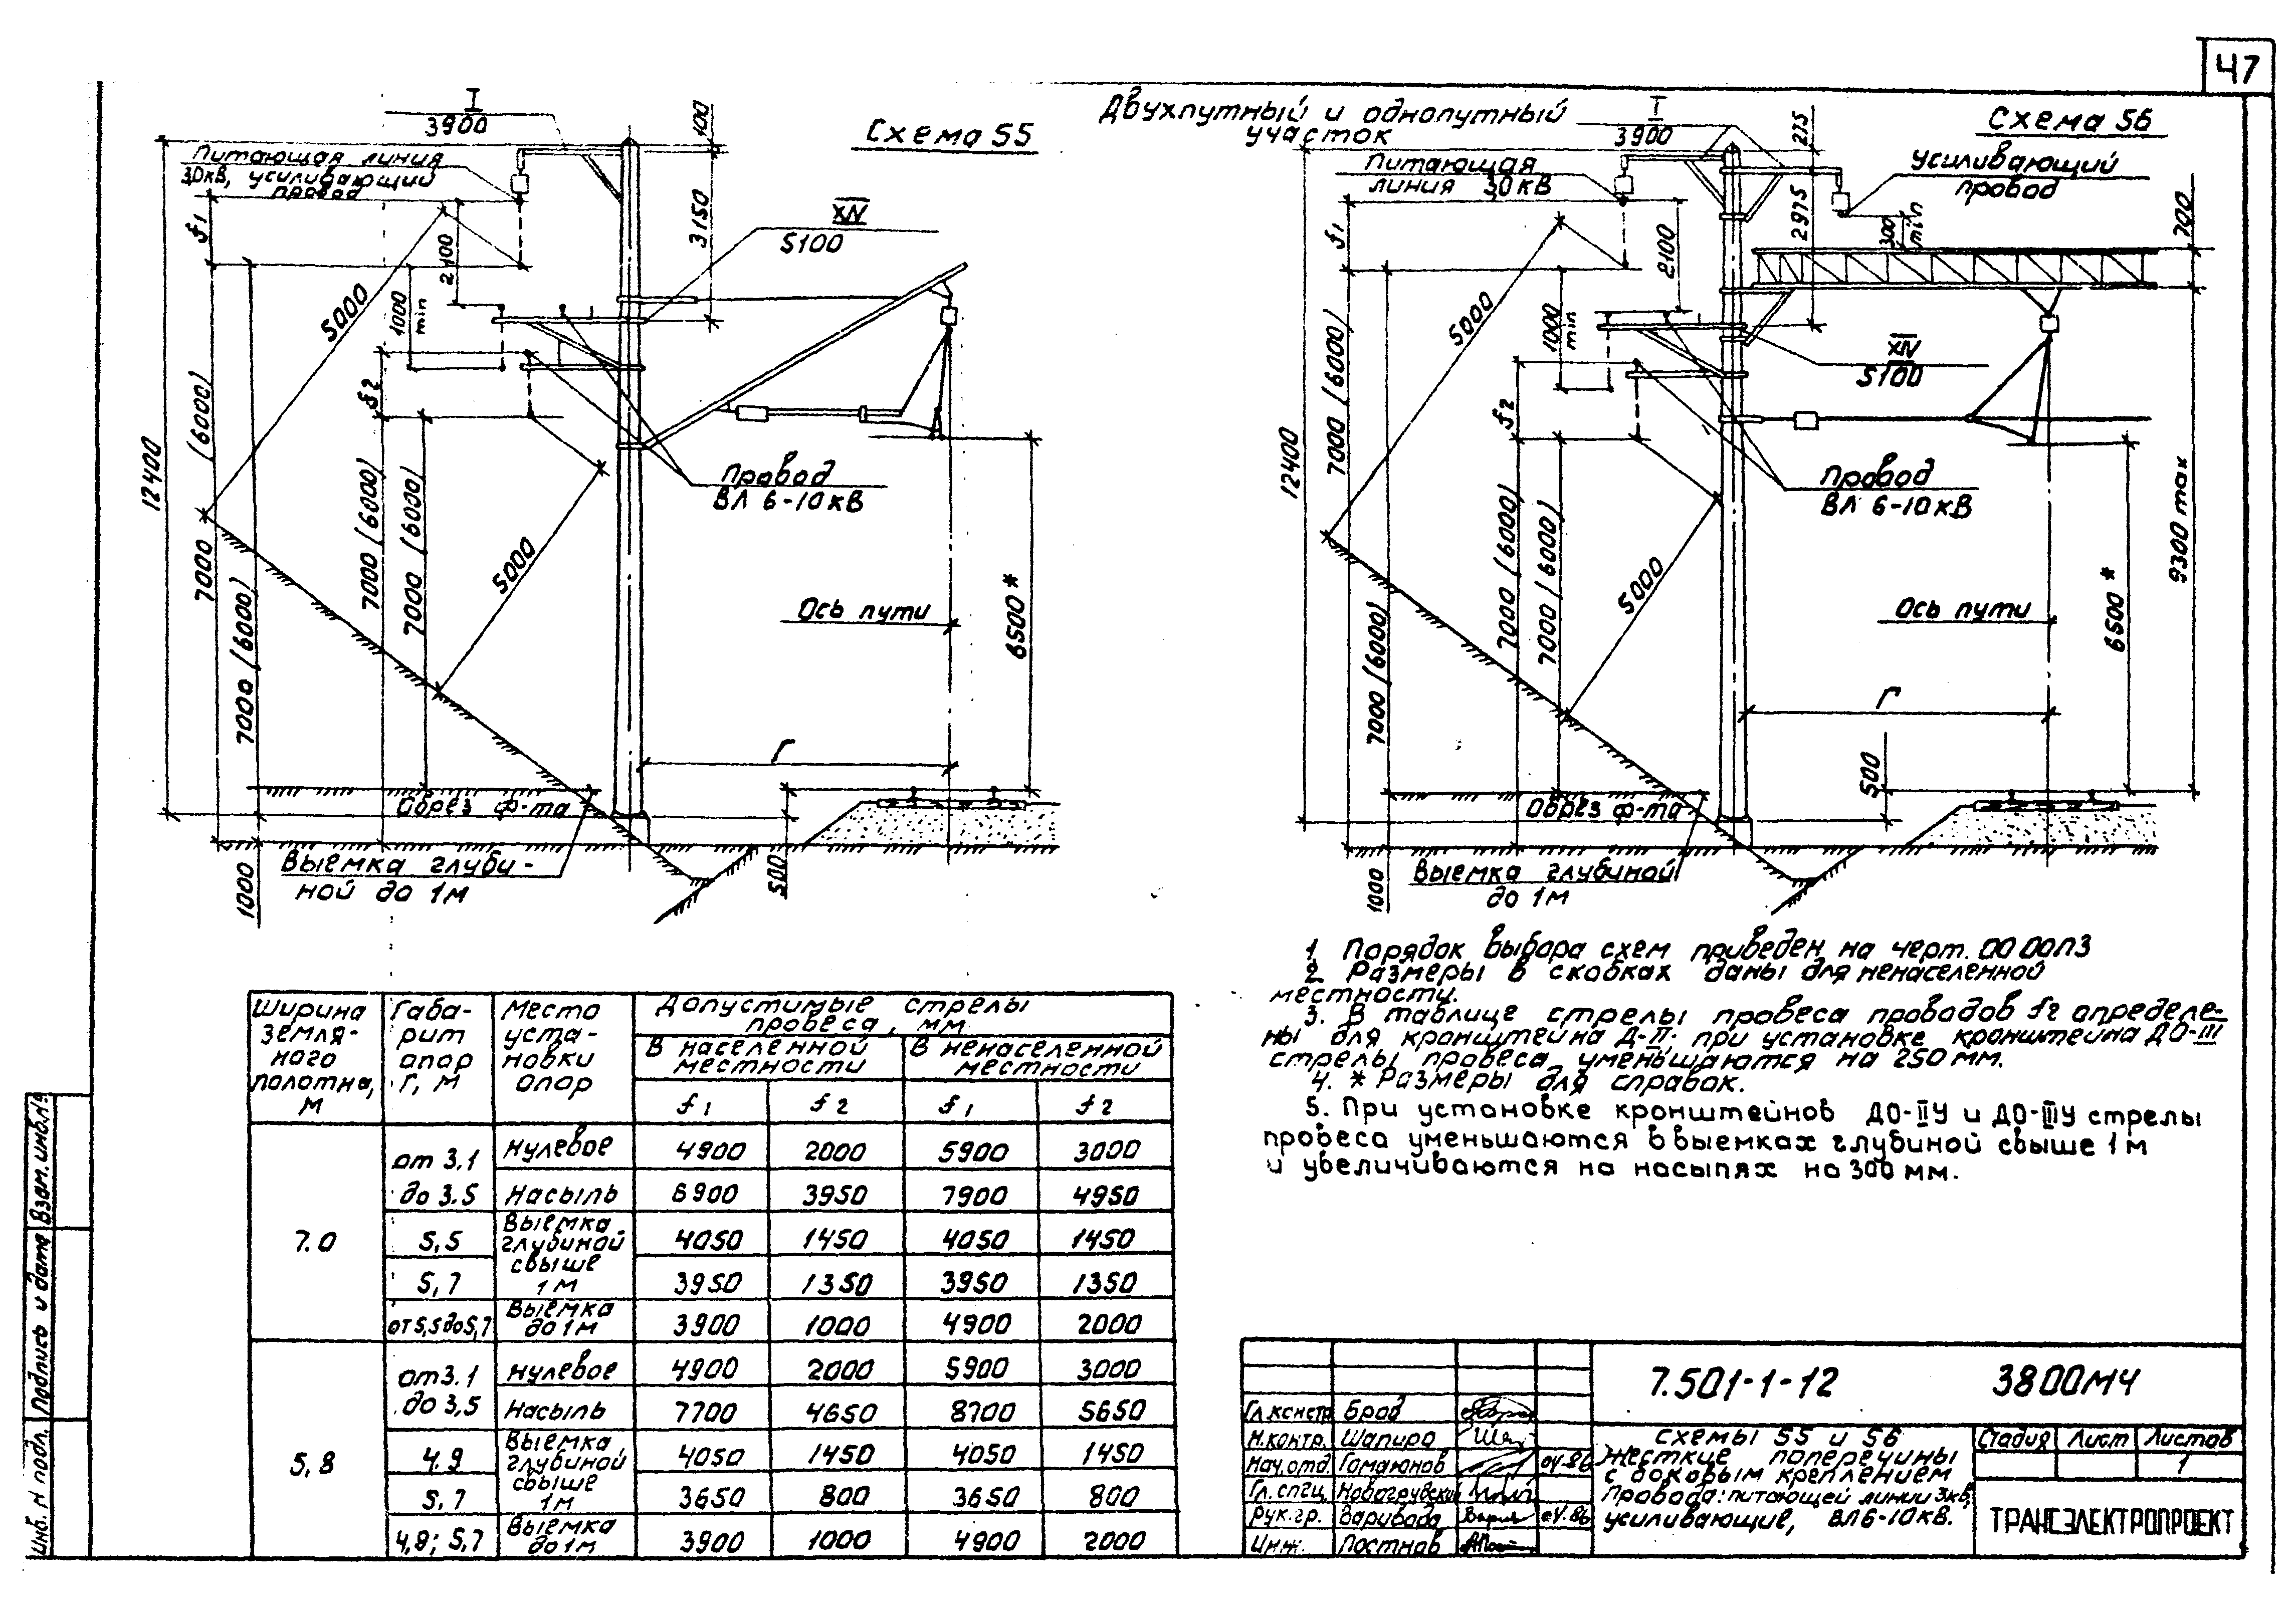 47
Двухпутный и однопутный
участок
Схема 55
I
3900
100
Питающая линия
3,0кВ, усиливающий
провод
f1
2100
3150
XIV
5100
1000
min
5000
f2
7000 (6000)
12400
Провод
ВЛ 6-10кВ
7000 (6000)
7000 (6000)
7000 (6000)
5000
6500*
Ось пути
Г
Обрез ф-та
Выемка глуби-
ной до 1м
1000
500
Схема 56
I
3900
275
Питающая
линия 3,0кВ
Усиливающий
провод
f1
2100
2975
300
min
700
5000
1000
min
XIV
5100
f2
7000 (6000)
12400
Провод
ВЛ 6-10кВ
7000 (6000)
7000 (6000)
7000 (6000)
5000
9300 max
6500*
Ось пути
Г
500
Обрез ф-та
Выемка глубиной
до 1м
1000
1. Порядок выбора схем приведен на черт. 0000ПЗ
2. Размеры в скобках даны для ненаселенной
местности.
3. В таблице стрелы провеса проводов f2 определе-
ны для кронштейна Д-II. при установке кронштейна ДО-III
стрелы провеса уменьшаются на 250 мм.
4. * Размеры для справок.
5. При установке кронштейнов ДО-IIУ и ДО-IIIУ стрелы
провеса уменьшаются в выемках глубиной свыше 1м
и увеличиваются на насыпях на 300 мм.
Ширина земля- ного полотна, м | Габа- рит опор Г, м | Место уста- новки опор | Допустимые стрелы провеса, мм
В населенной местности | В ненаселенной местности
f1 | f2 | f1 | f2
7.0 | от 3.1 до 3.5 | Нулевое | 4900 | 2000 | 5900 | 3000
Насыпь | 6900 | 3950 | 7900 | 4950
5,5 | Выемка глубиной свыше 1м | 4050 | 1450 | 4050 | 1450
5,7 | 3950 | 1350 | 3950 | 1350
от 5,5 до 5,7 | Выемка до 1м | 3900 | 1000 | 4900 | 2000
5,8 | от 3.1 до 3,5 | Нулевое | 4900 | 2000 | 5900 | 3000
Насыпь | 7700 | 4650 | 8700 | 5650
4.9 | Выемка глубиной свыше 1м | 4050 | 1450 | 4050 | 1450
5.7 | 3650 | 800 | 3650 | 800
4,9; 5,7 | Выемка до 1м | 3900 | 1000 | 4900 | 2000
Инв. N подл. | Подпись и дата | Взам. инв. №
7.501-1-12 3800МЧ
Гл.констр. Брод
Н.контр. Шапиро
Нач.отд. Гамаюнов 04.86
Гл.спец. Новогрудский
Рук.гр. Варивода 04.86
Инж. Постнов
Схемы 55 и 56
Жесткие поперечины
с боковым креплением
Провода: питающей линии 3кВ,
усиливающие, ВЛ 6-10кВ.
Стадия Лист Листов
1
ТРАНСЭЛЕКТРОПРОЕКТ